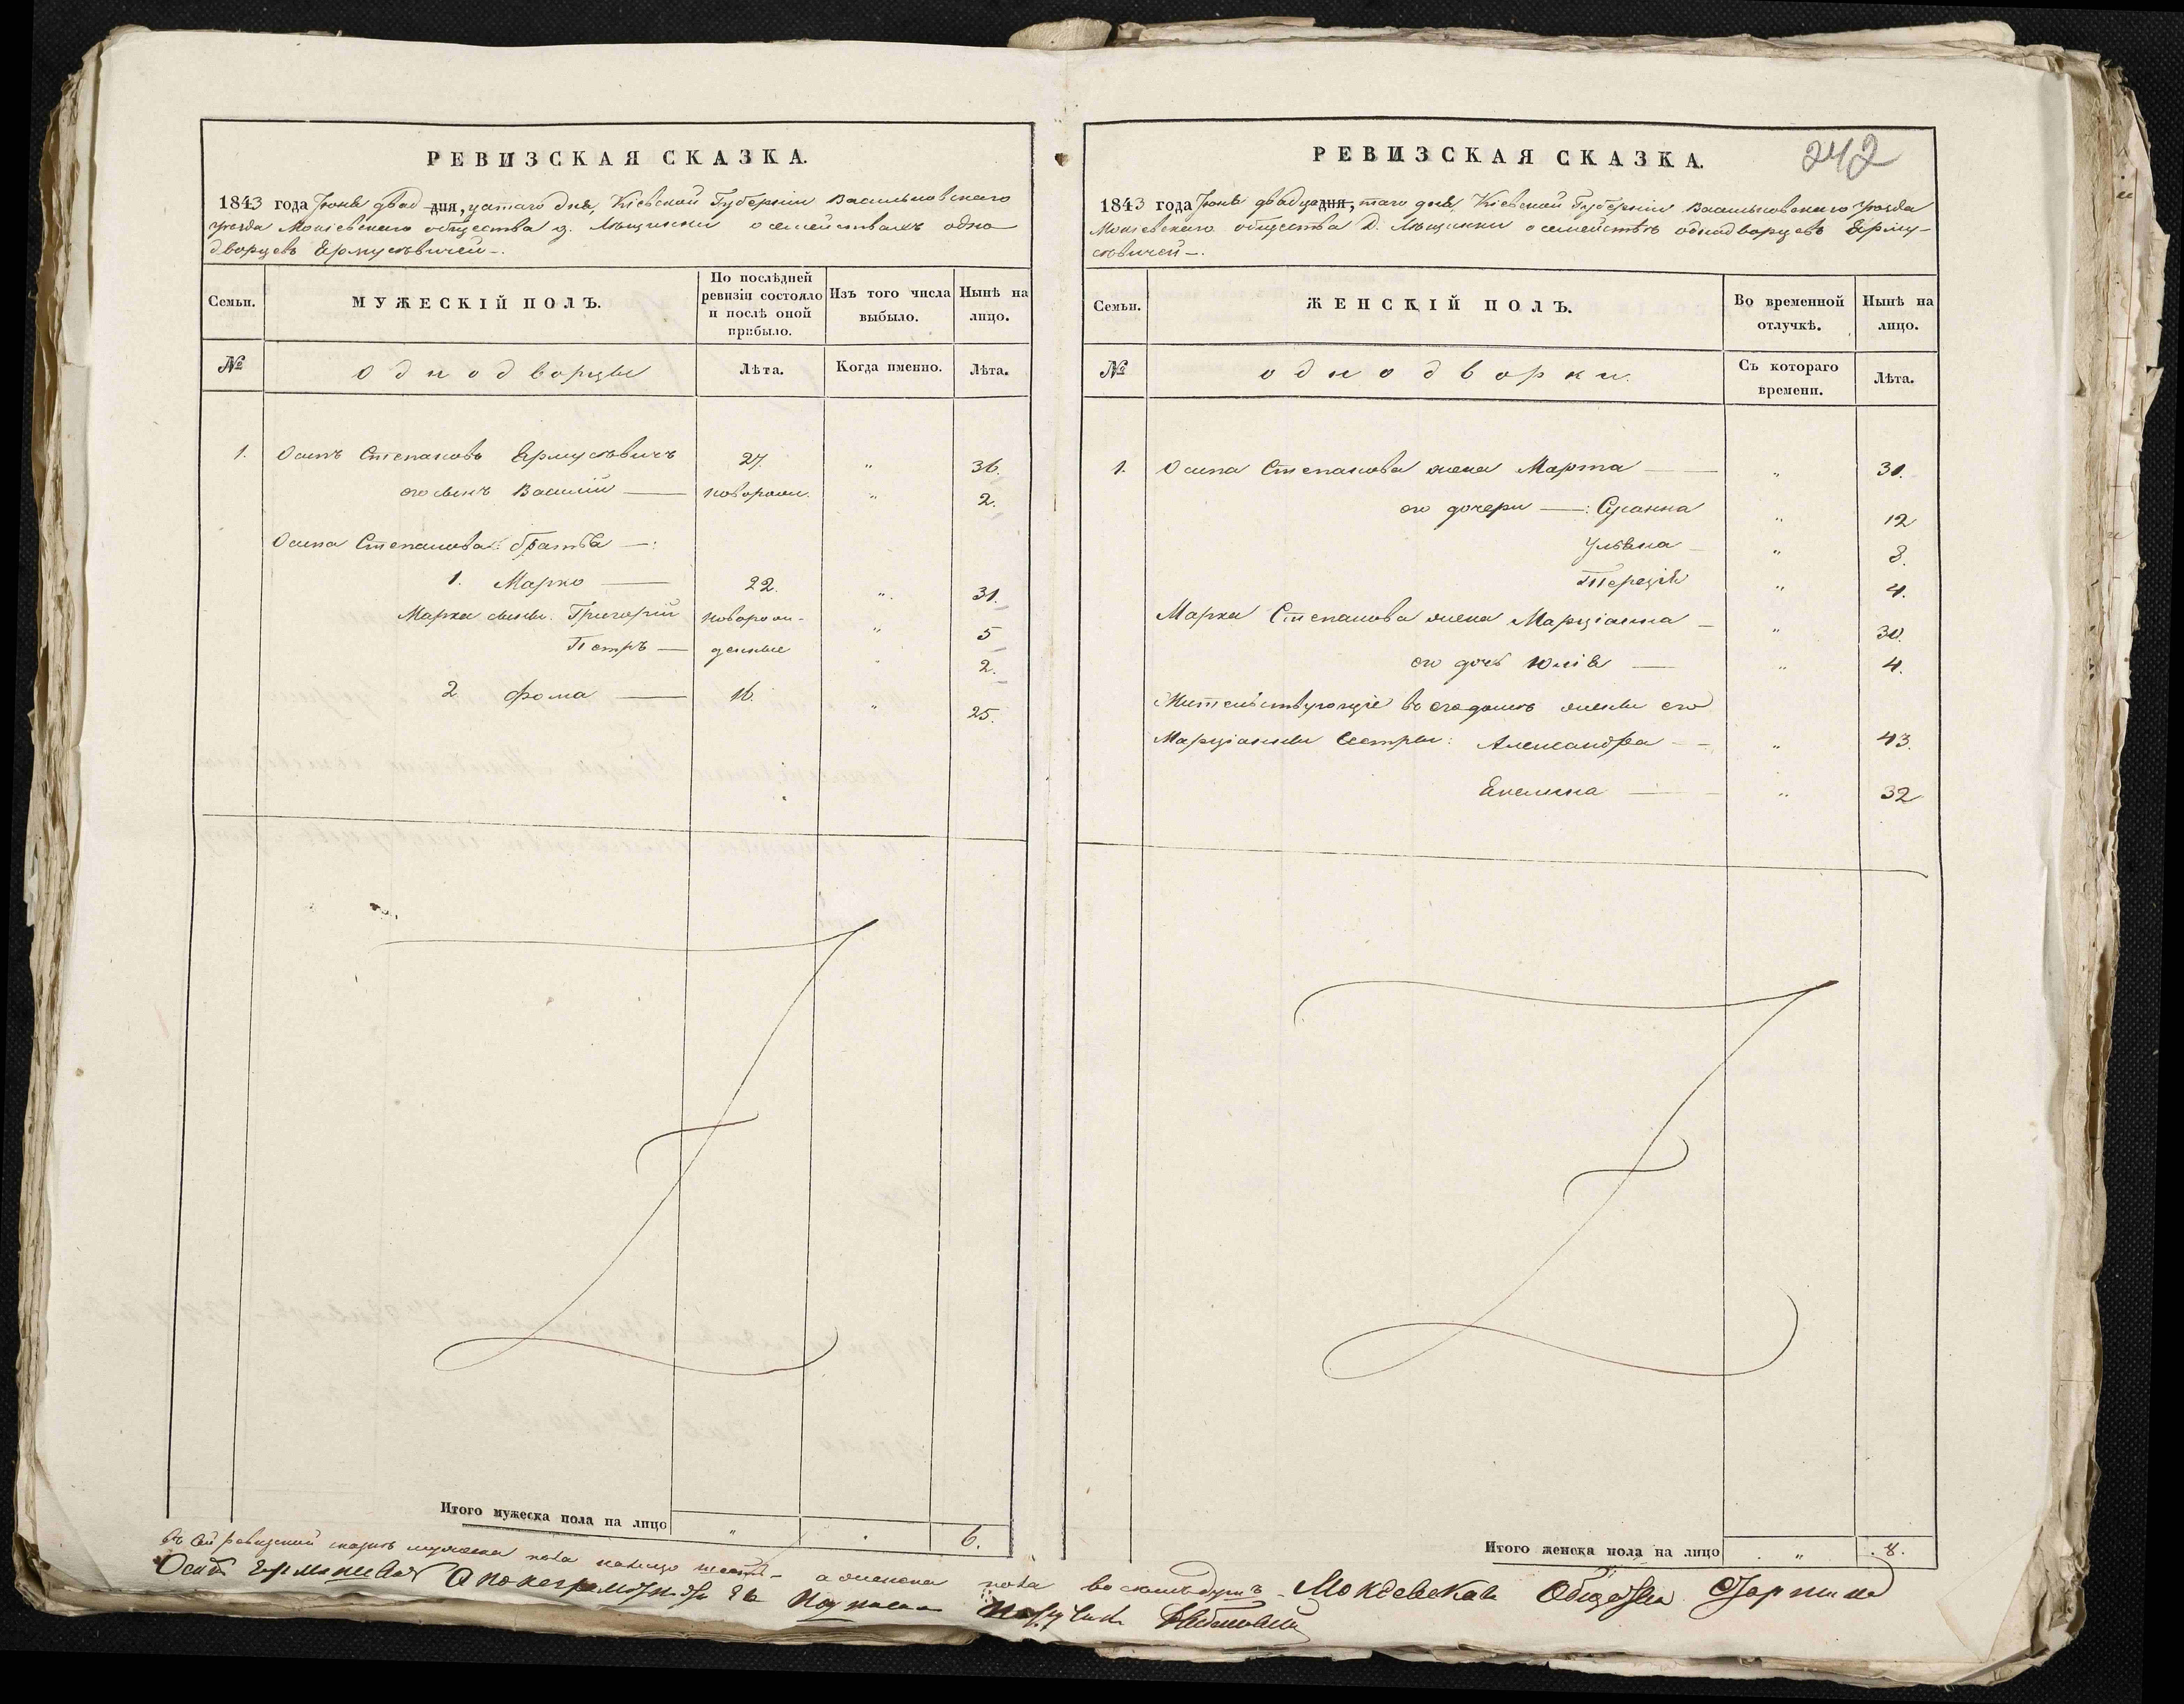 РЕВИЗСКАЯ СКАЗКА.
1843 года Іюня двад дня, цатаго дня, Кіевской Губерніи Васильковскаго
уезда Мокіевскаго общества д. Лещинки о семействахъ одно
дворцевъ Ермусевичей -.
Семьи.
МУЖЕСКІЙ ПОЛЪ.
По послѣдней ревизіи состояло и послѣ оной прибыло.
Изъ того числа выбыло.
Нынѣ на лицо.
№
однодворцы
Лѣта.
Когда именно.
Лѣта.
1. Осипъ Степановъ Ермусевичъ 27. " 36.
его сынъ Василій — новорож. " 2.
Осипа Степанова братья —:
1. Марко — 22. " 31.
Марка сыны. Григорій новорож- " 5
Петръ — денные " 2.
2 Фома — 16. " 25.
Итого мужеска пола на лицо " . 6.
РЕВИЗСКАЯ СКАЗКА.
242
1843 года Іюня двадца дня, таго дня, Кіевской Губерніи Васильковскаго уезда
Мокіевскаго общества Д. Лещинки о семействе однодворцевъ Ерму-
севичей -.
Семьи.
ЖЕНСКІЙ ПОЛЪ.
Во временной отлучкѣ.
Нынѣ на лицо.
№
однодворки.
Съ котораго времени.
Лѣта.
1. Осипа Степанова жена Марта — " 31.
его дочери —: Сусанна " 12
Ульяна — " 8.
Терезія " 4.
Марка Степанова жена Марціанна — " 30.
его дочь Юлія — " 4.
Жительствующіе въ его доме жены его
Марціанны сестры: Александра — " 43.
Екелина — " 32
Итого женска пола на лицо " 8.
въ сей ревизской сказке мужеска пола налицо шесть - а женска пола восемь душъ - Мокеевскаго Общества Старшина
Осипъ а по неграмотности Его подписал